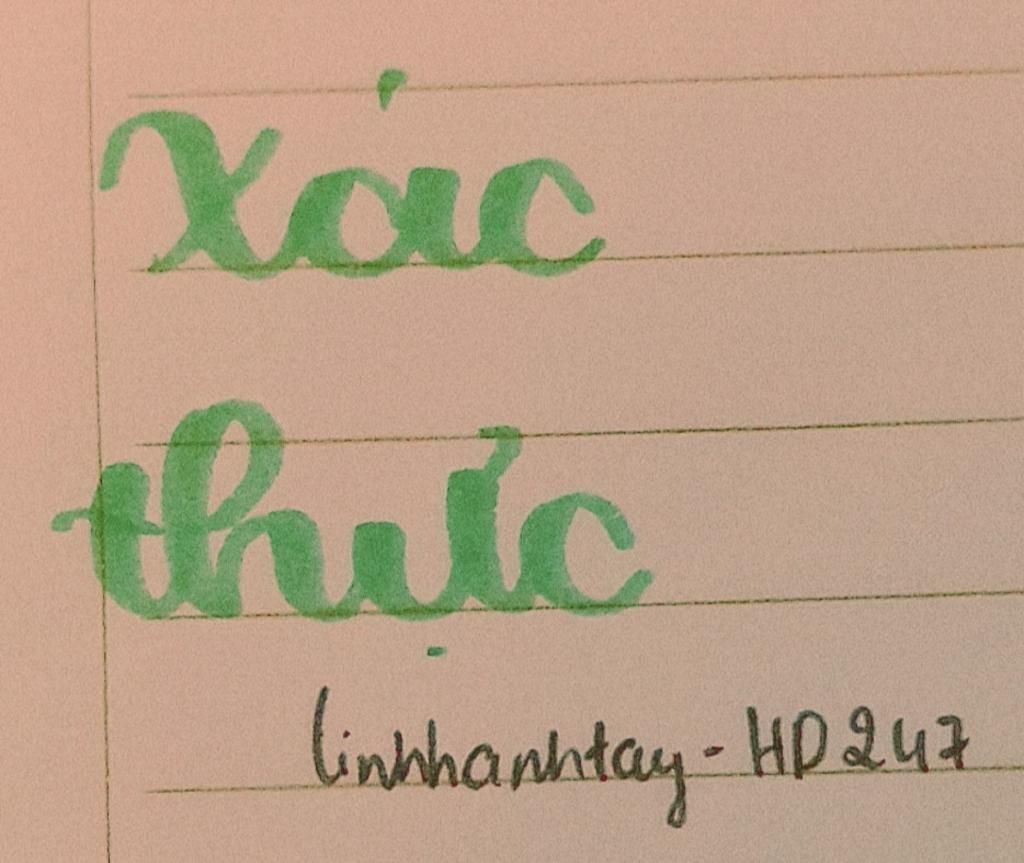 Xác
thực
linhhanhtay - HD247